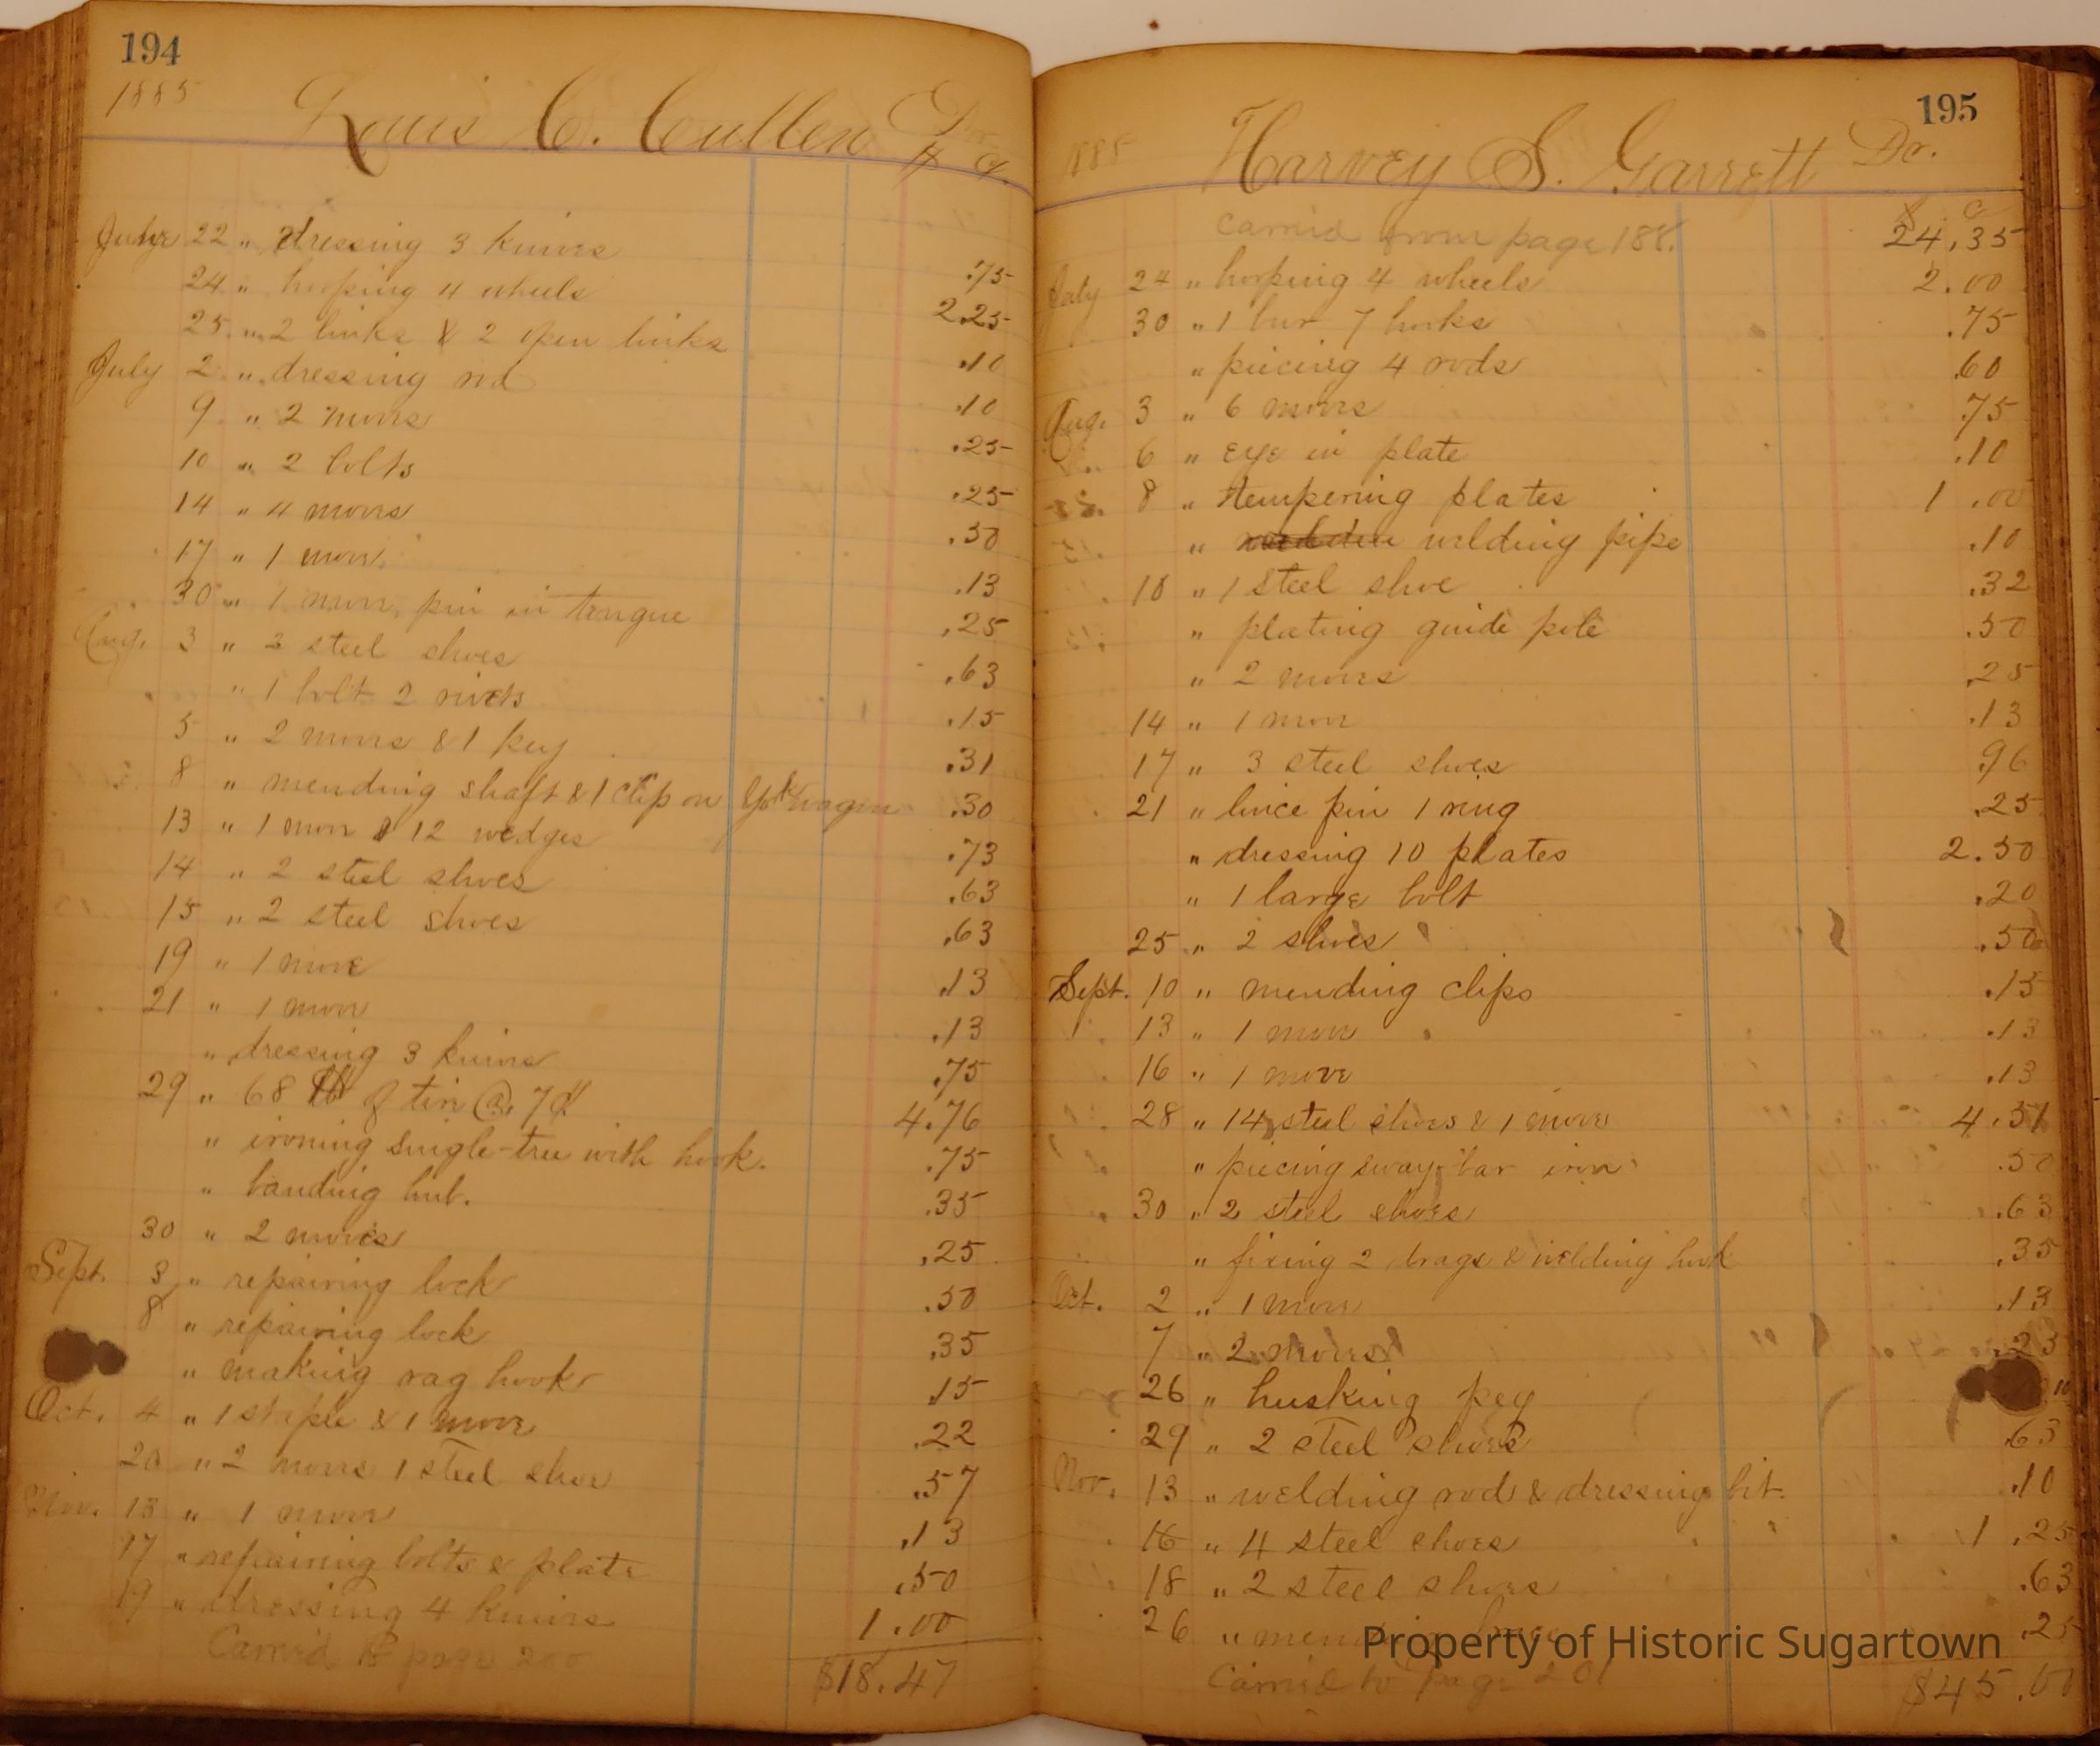 194
1885
Louis C. Cullen Dr.
$ c.
June 22 " dressing 3 knives .75
24 " hooping 4 wheels 2.25
25 " 2 links & 2 open links .10
July 2 " dressing rod .10
9 " 2 moves .25
10 " 2 bolts .25
14 " 4 moves .50
17 " 1 move .13
30 " 1 move, pin in tongue .25
Aug. 3 " 2 steel shoes .63
" 1 bolt 2 rivets .15
5 " 2 moves & 1 key .31
8 " mending shaft & 1 clip on wagon .30
13 " 1 move & 12 wedges .73
14 " 2 steel shoes .63
15 " 2 steel shoes .63
19 " 1 move .13
21 " 1 move .13
" dressing 3 knives .75
29 " 68 lb of tin @ 7¢ 4.76
" ironing single-tree with hook. .75
" banding hub. .35
30 " 2 moves .25
Sept. 3 " repairing lock .50
8 " repairing lock .35
" making rag hook .15
Oct. 4 " 1 staple & 1 move .22
20 " 2 moves 1 steel shoe .57
Nov. 13 " 1 move .13
17 " repairing bolts & plate .50
19 " dressing 4 knives 1.00
Carried to page 200 $18.47
195
1885 Harvey S. Garrett Dr.
$ c
Carried from page 188. 24.35
July 24 " hooping 4 wheels 2.00
30 " 1 bur 7 hooks .75
" piecing 4 rods .60
Aug. 3 " 6 moves .75
6 " eye in plate .10
8 " tempering plates 1.00
" welding pipe .10
10 " 1 steel shoe .32
" plating guide pole .50
" 2 moves .25
14 " 1 move .13
17 " 3 steel shoes .96
21 " lince pin 1 ring .25
" dressing 10 plates 2.50
" 1 large bolt .20
25 " 2 shoes .50
Sept. 10 " mending clips .15
13 " 1 move .13
16 " 1 move .13
28 " 14 steel shoes & 1 move 4.51
" piecing sway bar iron .50
30 " 2 steel shoes .63
" fixing 2 drags & welding hook .35
Oct. 2 " 1 move .13
7 " 2 moves .25
26 " husking peg .10
29 " 2 steel shoes .63
Nov. 13 " welding rod & dressing bit. .10
16 " 4 steel shoes 1.25
18 " 2 steel shoes .63
26 " .25
Carried to Page 201 $45.00
Property of Historic Sugartown